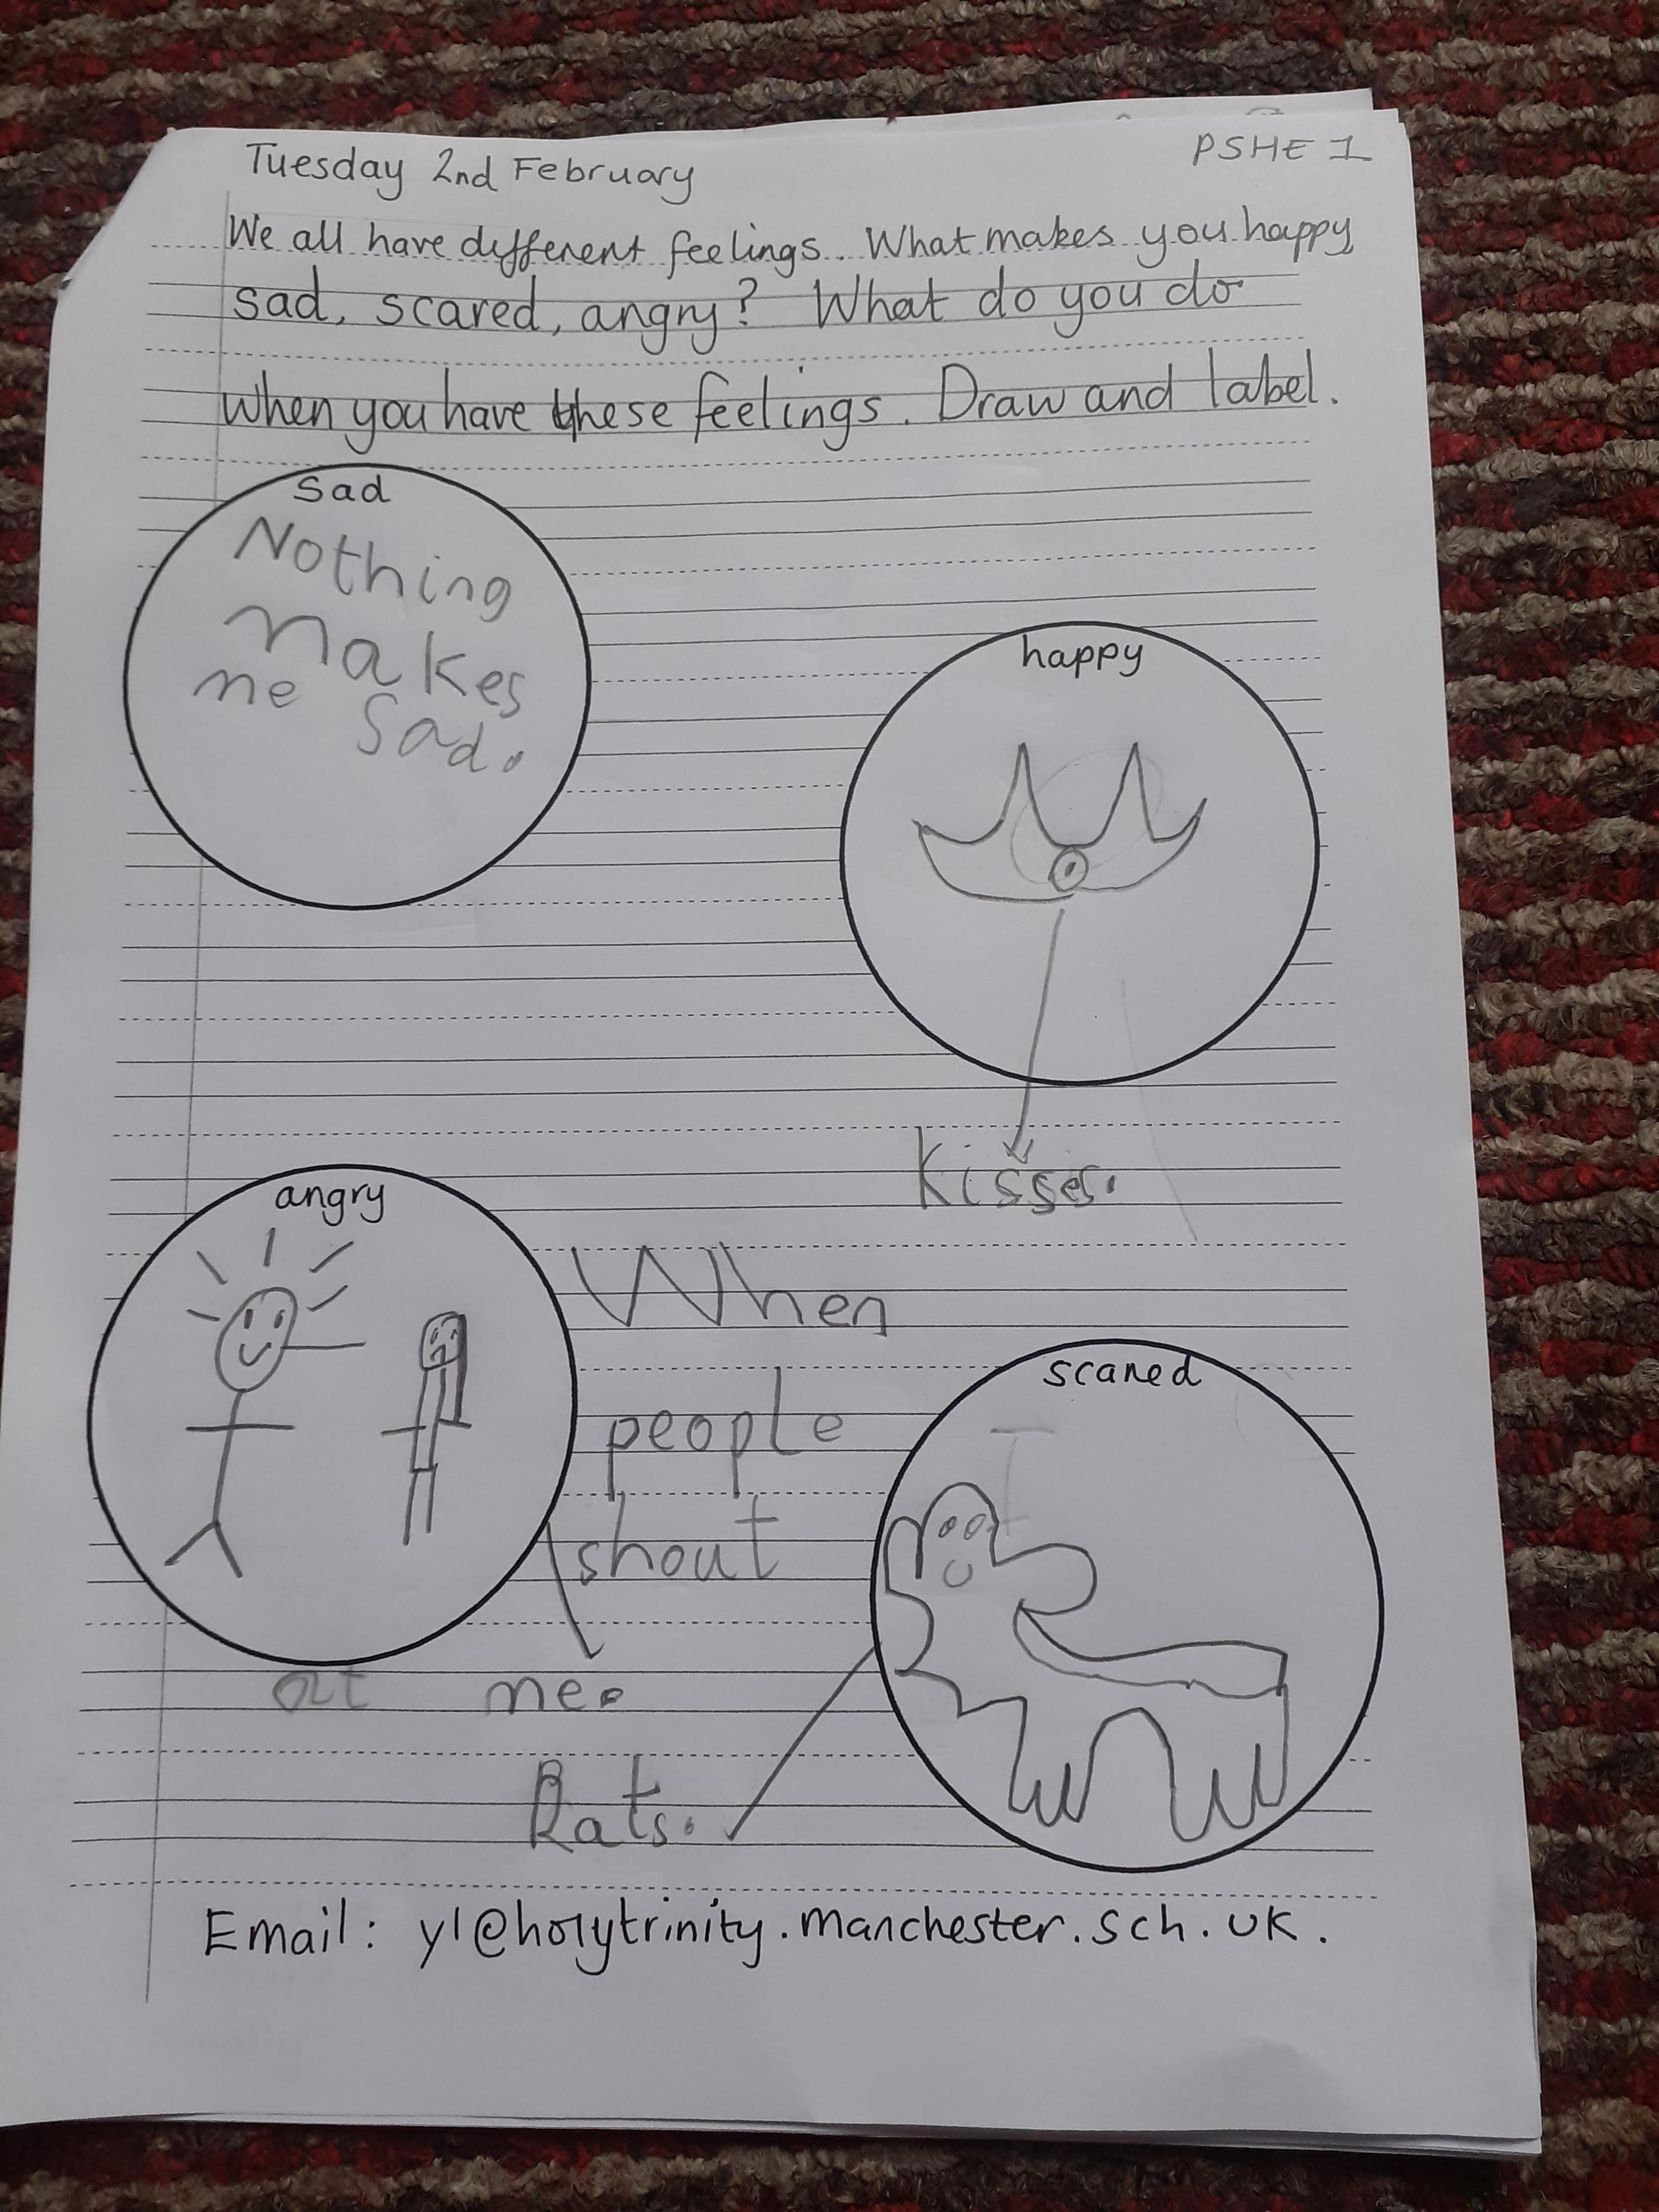 PSHE 1
Tuesday 2nd February
We all have different feelings. What makes you happy,
sad, scared, angry? What do you do
when you have these feelings. Draw and label.
Sad
Nothing
makes
me sad.
happy
Kisses.
angry
When
people
shout
at me.
scared
Rats.
Email: y1@holytrinity.manchester.sch.uk.